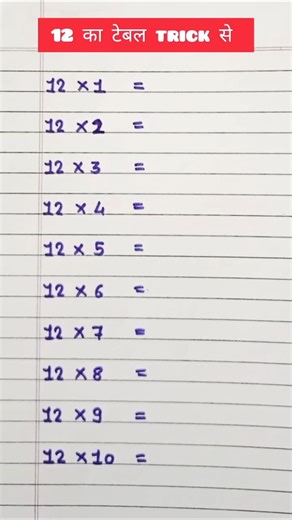 12 का टेबल TRICK से
12 × 1 =
12 × 2 =
12 × 3 =
12 × 4 =
12 × 5 =
12 × 6 =
12 × 7 =
12 × 8 =
12 × 9 =
12 × 10 =